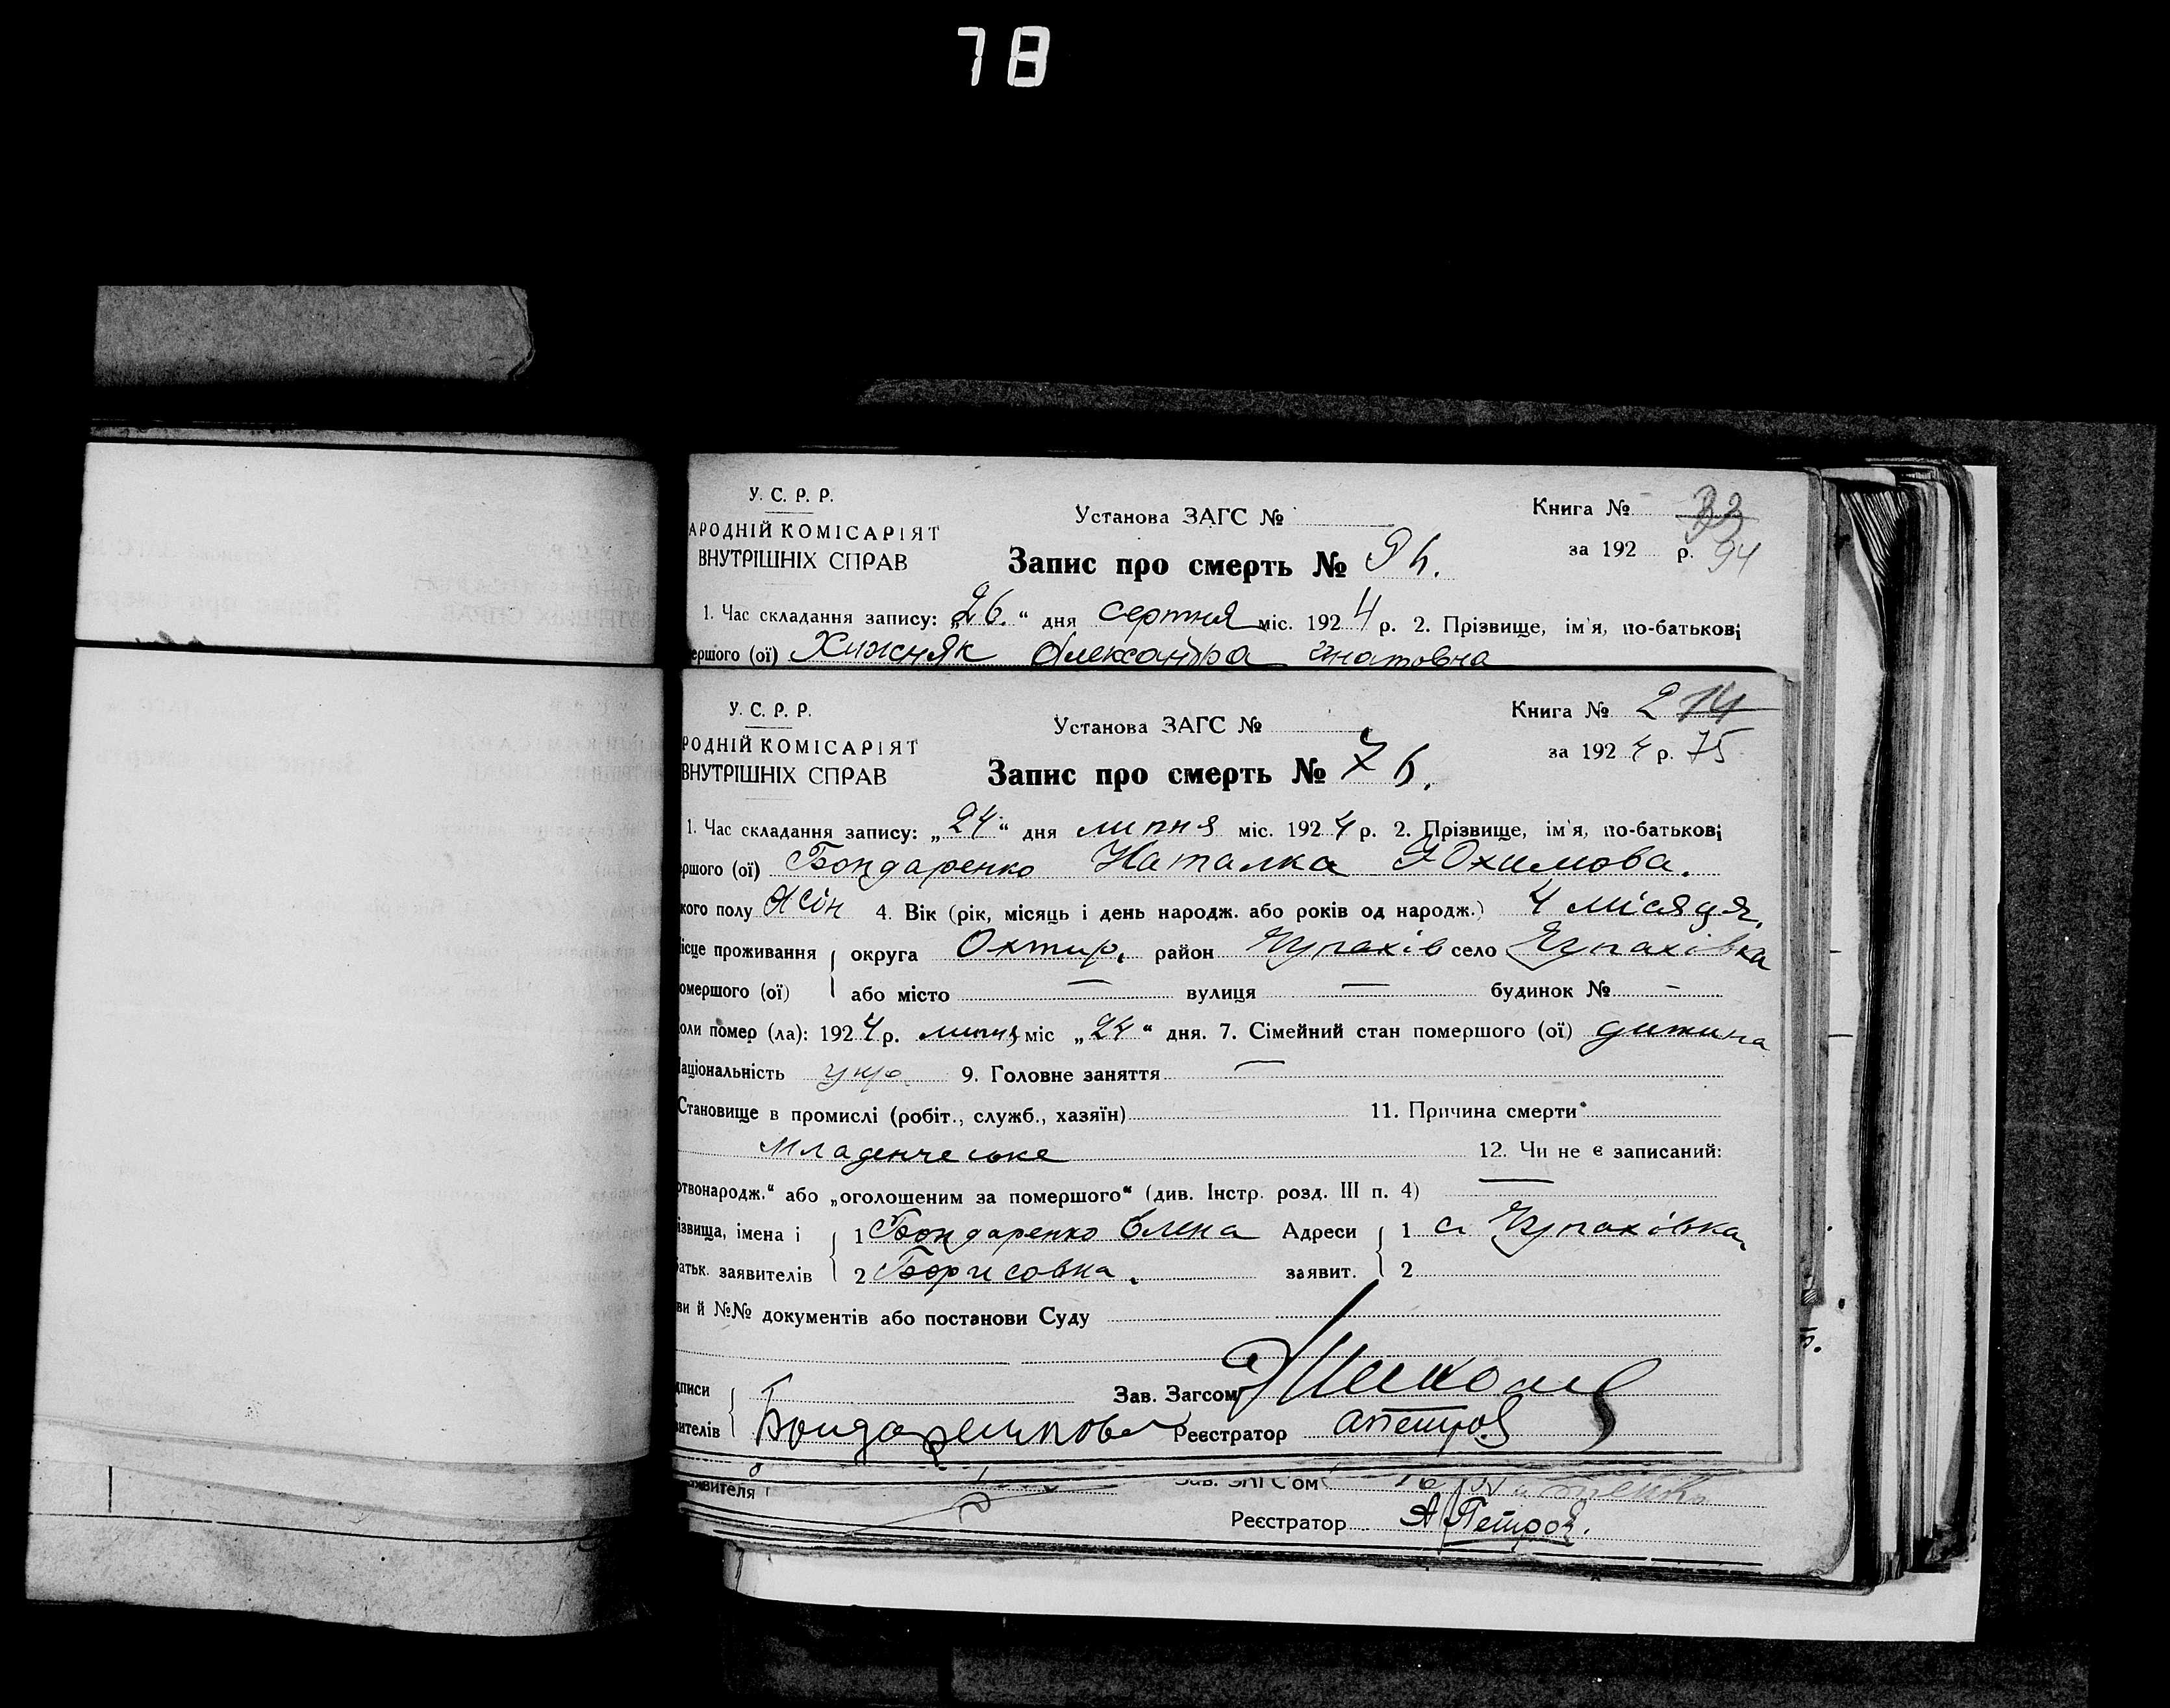 78
У. С. Р. Р.
АРОДНІЙ КОМІСАРІЯТ
ВНУТРІШНІХ СПРАВ
Установа ЗАГС №
Книга №
за 192 р. 94
Запис про смерть №
1. Час складання запису: „26.“ дня серпня міс. 1924 р. 2. Прізвище, ім'я, по-батькові
ершого (ої) Хижняк Олександра Гнатовна
У. С. Р. Р.
РОДНІЙ КОМІСАРІЯТ
ВНУТРІШНІХ СПРАВ
Установа ЗАГС №
Книга № 2 14
за 1924 р. 75
Запис про смерть № 76.
1. Час складання запису: „24“ дня липня міс. 1924 р. 2. Прізвище, ім'я, по-батькові
ршого (ої) Бондаренко Наталка Юхимова.
кого полу жін 4. Вік (рік, місяць і день народж. або років од народж.) 4 місяця.
ісце проживання округа Охтир. район Чупахів село Чупахівка
омершого (ої) або місто — вулиця — будинок № -
оли помер (ла): 1924 р. липня міс „24“ дня. 7. Сімейний стан помершого (ої) дитина
Національність укр. 9. Головне заняття —
Становище в промислі (робіт., служб., хазяїн) 11. Причина смерти
Младенческе 12. Чи не є записаний:
ртвонародж.“ або „оголошеним за помершого“ (див. Інстр. розд. III п. 4) —
ізвища, імена і 1 Бондаренко Елена Адреси 1 с. Чупахівка
батьк. заявителів 2 Борисовна. заявит. 2
ви й №№ документів або постанови Суду
дписи Зав. Загсом
вителів Реєстратор АПетров
аявителя Зав. ЗАГСом
Реєстратор А Петров.